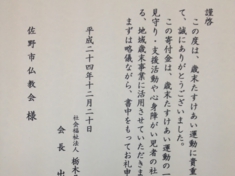 謹啓
この度は、歳末たすけあい運動に貴重
て、誠にありがとうございました。
この寄付金は、歳末たすけあい運動の一
見守り・支援活動や心身障がい児者の社
る、地域歳末事業に活用させていただきま
まずは略儀ながら、書中をもってお礼申
平成二十四年十二月二十日
社会福祉法人 栃木
会長 出
佐野市仏教会 様